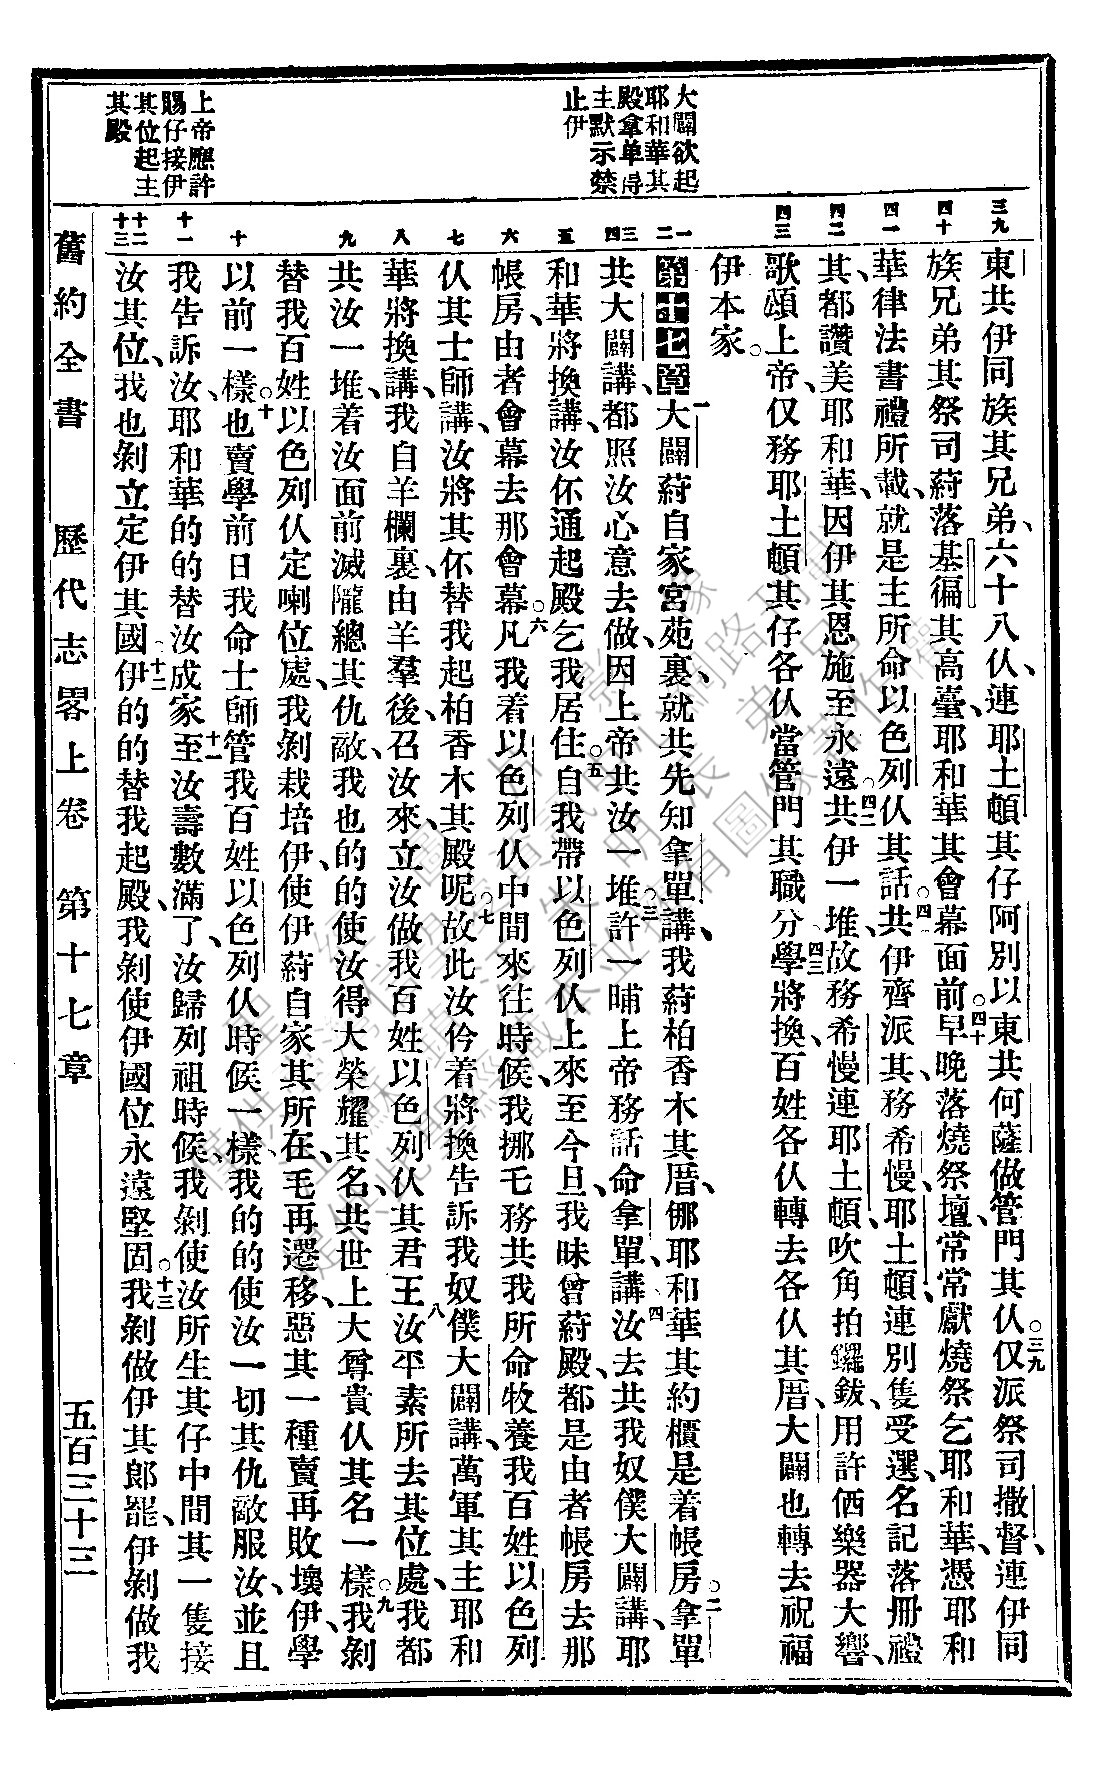 大闢欲起
耶和華其
殿拿单得
主默示禁
止伊
上帝應許
賜仔接伊
其位起主
其殿
三九
四十
四一
四二
四三
一
二
三
四
五
六
七
八
九
十
十一
十二
十三
東共伊同族其兄弟、六十八仫、連耶土頓其仔阿別以東共何薩做管門其仫。三九仅派祭司撒督、連伊同
族兄弟其祭司、蒔落基徧其高臺、耶和華其會幕面前。四十早晚落燒祭壇、常常獻燒祭乞耶和華、憑耶和
華律法書禮所載、就是主所命以色列仫其話。四一共伊齊派其、務希慢、耶土頓、連別隻受選、名記落冊禮、
其都讚美耶和華、因伊其恩施至永遠。四二共伊一堆、故務希慢連耶土頓、吹角拍鑼鈸、用許俩樂器大響、
歌頌上帝、仅務耶土頓其仔各仫當管門其職分。四三學將換、百姓各仫轉去各仫其厝、大闢也轉去祝福
伊本家。
第十七章 一大闢蒔自家宮苑裏、就共先知拿單講、我蒔柏香木其厝、倻耶和華其約櫃是着帳房。二拿單
共大闢講、都照汝心意去做、因上帝共汝一堆。三許一晡上帝務話命拿單講、四汝去共我奴僕大闢講、耶
和華將換講、汝伓通起殿乞我居住。五自我帶以色列仫上來至今旦、我昧曾蒔殿、都是由者帳房去那
帳房、由者會幕去那會幕。六凡我着以色列仫中間來往時候、我挪乇務共我所命牧養我百姓以色列
仫其士師講、汝將其伓替我起柏香木其殿呢。七故此汝仱着將換告訴我奴僕大闢講、萬軍其主耶和
華將換講、我自羊欄裏、由羊羣後、召汝來、立汝做我百姓以色列仫其君王、八汝平素所去其位處、我都
共汝一堆、着汝面前滅隴總其仇敵、我也的的使汝得大榮耀其名、共世上大尊貴仫其名一樣。九我剝
替我百姓以色列仫定喇位處、我剝栽培伊、使伊蒔自家其所在、毛再遷移、惡其一種賣再敗壞伊、學
以前一樣。十也賣學前日我命士師管我百姓以色列仫時候一樣、我的的使汝一切其仇敵服汝、並且
我告訴汝、耶和華的的替汝成家。十一至汝壽數滿了、汝歸列祖時候、我剝使汝所生其仔中間其一隻接
汝其位、我也剝立定伊其國。十二伊的的替我起殿、我剝使伊國位永遠堅固。十三我剝做伊其郎罷、伊剝做我
舊約全書 歷代志畧上卷 第十七章 五百三十三